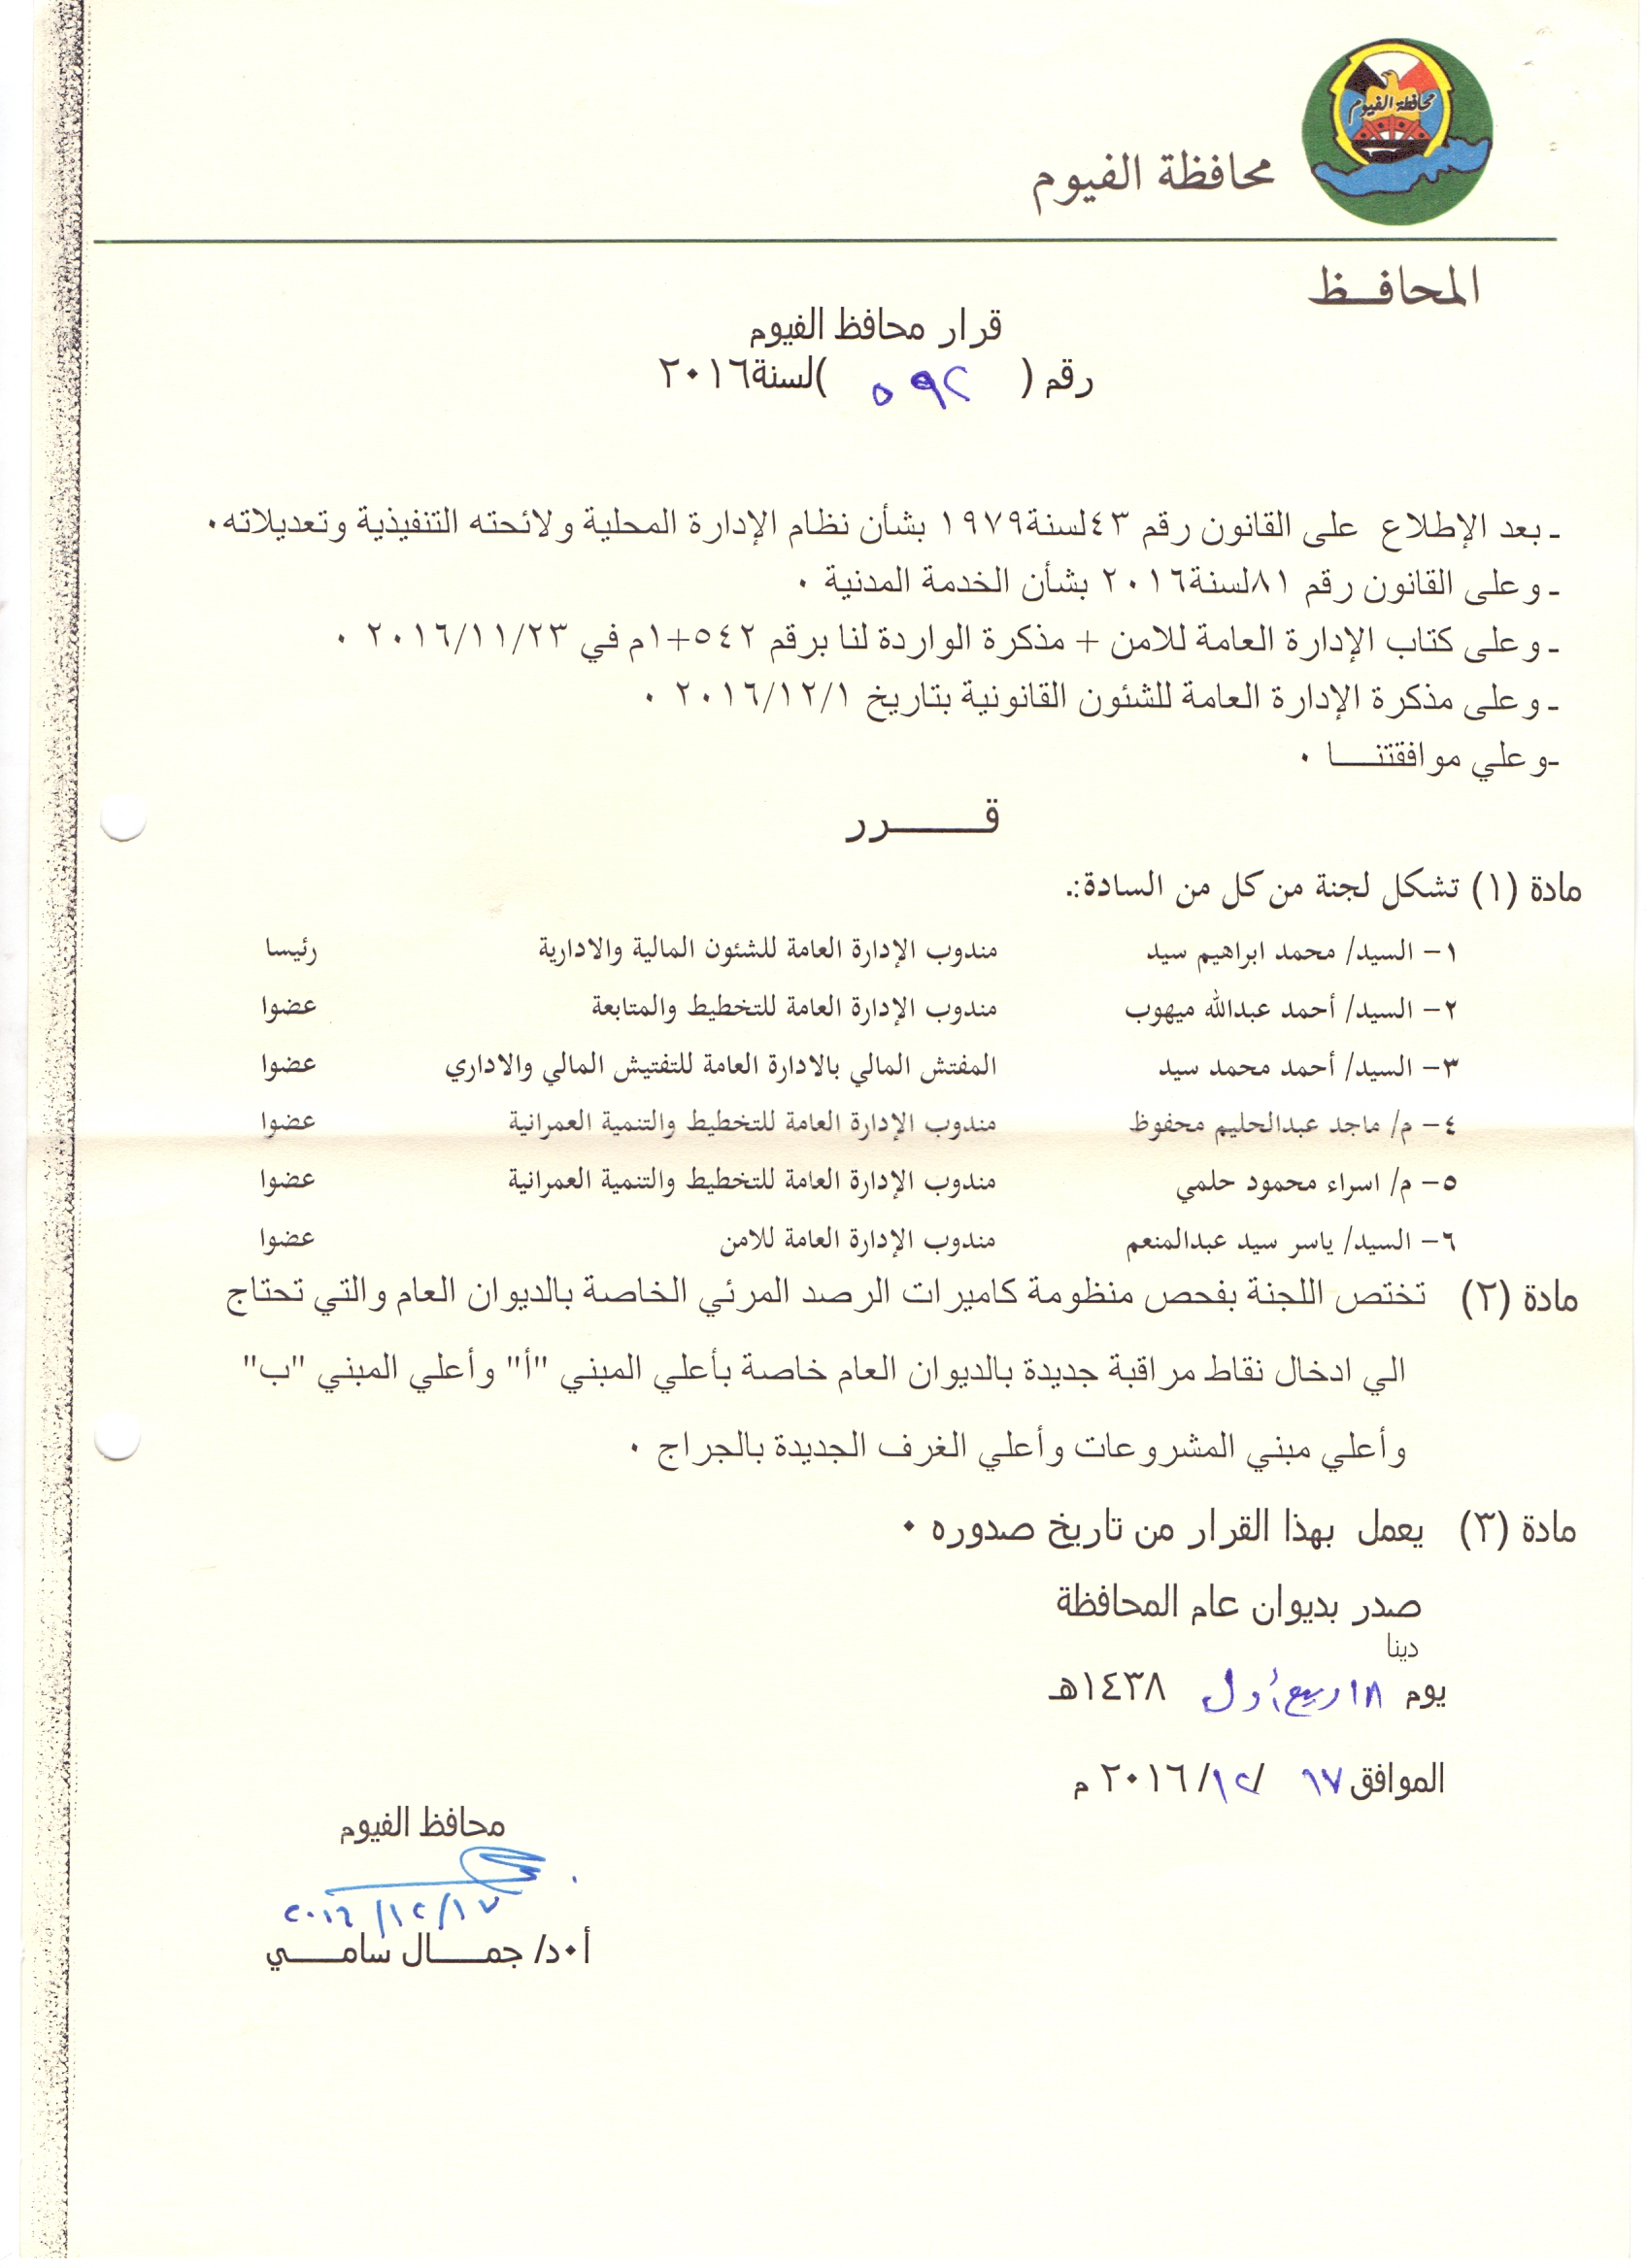 محافظة الفيوم
محافظة الفيوم
المحافــظ
قرار محافظ الفيوم
رقم ( ٥٩٢ )لسنة٢٠١٦
ـ بعد الإطلاع على القانون رقم ٤٣لسنة١٩٧٩ بشأن نظام الإدارة المحلية ولائحته التنفيذية وتعديلاته٠
ـ وعلى القانون رقم ٨١لسنة٢٠١٦ بشأن الخدمة المدنية ٠
ـ وعلى كتاب الإدارة العامة للامن + مذكرة الواردة لنا برقم ٥٤٢+١م في ٢٠١٦/١١/٢٣ ٠
ـ وعلى مذكرة الإدارة العامة للشئون القانونية بتاريخ ٢٠١٦/١٢/١ ٠
-وعلي موافقتنــــا ٠
قــــــرر
مادة (١) تشكل لجنة من كل من السادة:.
١- السيد/ محمد ابراهيم سيد مندوب الإدارة العامة للشئون المالية والادارية رئيسا
٢- السيد/ أحمد عبدالله ميهوب مندوب الإدارة العامة للتخطيط والمتابعة عضوا
٣- السيد/ أحمد محمد سيد المفتش المالي بالادارة العامة للتفتيش المالي والاداري عضوا
٤- م/ ماجد عبدالحليم محفوظ مندوب الإدارة العامة للتخطيط والتنمية العمرانية عضوا
٥- م/ اسراء محمود حلمي مندوب الإدارة العامة للتخطيط والتنمية العمرانية عضوا
٦- السيد/ ياسر سيد عبدالمنعم مندوب الإدارة العامة للامن عضوا
مادة (٢) تختص اللجنة بفحص منظومة كاميرات الرصد المرئي الخاصة بالديوان العام والتي تحتاج
الي ادخال نقاط مراقبة جديدة بالديوان العام خاصة بأعلي المبني "أ" وأعلي المبني "ب"
وأعلي مبني المشروعات وأعلي الغرف الجديدة بالجراج ٠
مادة (٣) يعمل بهذا القرار من تاريخ صدوره ٠
صدر بديوان عام المحافظة
دينا
يوم ١٨ ربيع أول ١٤٣٨هـ
الموافق ١٧ /١٢/ ٢٠١٦ م
محافظ الفيوم
٢٠١٦/١٢/١٧
أ٠د/ جمــــال سامــــي